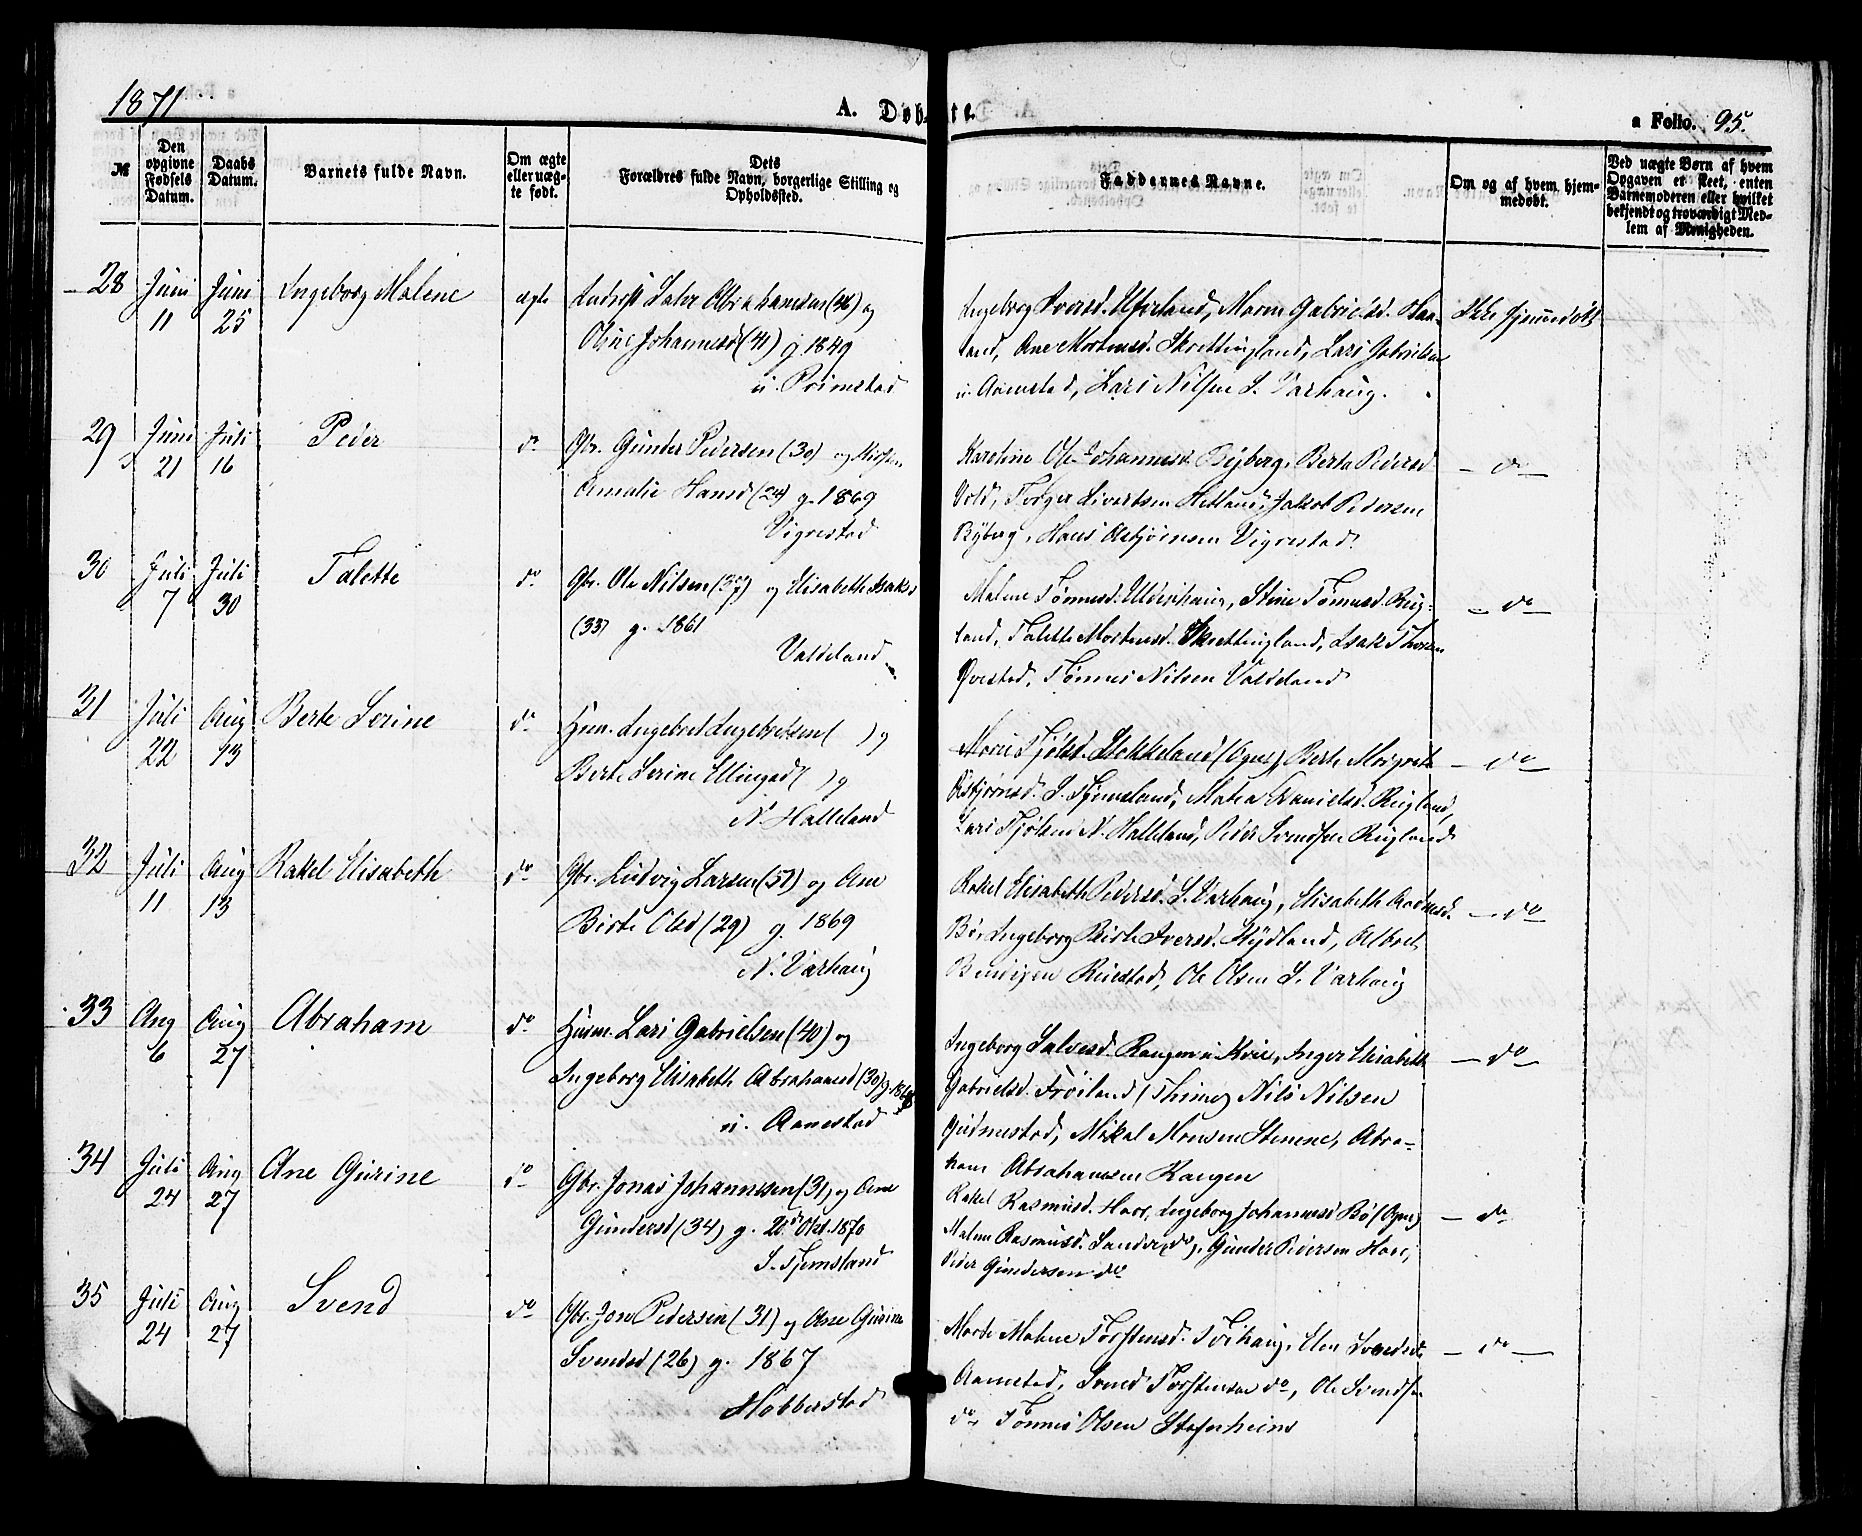 1871
A. Døbte.
a Folio. 95.
№ Den opgivne Fødsels Datum. Daabs Datum. Barnets fulde Navn. Om ægte eller uægte født. Dets Forældres fulde Navn, borgerlige Stilling og Opholdssted. Faddernes Navne. Om og af hvem hjemmedøbt. Ved uægte Børn af hvem Opgaven er skeet, enten Barnemoderen eller hvilket bekjendt og troværdigt Medlem af Menigheden.
28 Juni 11 Juni 25 Ingeborg Malene ægte
Abrahamsen (46) og
Oline Johannesd (41) g 1849
u. Primstad
Ingeborg Iversd. Maren Gabrielsd. Haa-
land, Ane Mortensd. Skrettingland, Lars Gabrielsen
u. Aanestad, Lars Nilsen S. Varhaug.
Ikke hjemmedøbt
29 Juni 21 Juli 16 Peder do
Gbr. Gunder Pedersen (30) og Kirsten
Amalie Hansd (24) g. 1869
Vigrestad
Karoline Johannesd Byberg, Berta Pedersd
Vold, Torger Sivertsen Hetland, Jakob Pedersen
Byberg, Hans Asbjørnsen Vigrestad.
— do —
30 Juli 7 Juli 30 Talette do
Gbr. Ole Nilsen (37) og Elisabeth Isaksd
(33) g. 1861
Valdeland
Malene Tønnesd. Ulderhaug, Stine Tønnesd. Rug-
land, Talette Mortensd. Skrettingland, Isak
Tønnes Nilsen Valdeland
— do —
31 Juli 22 Aug 13 Berte Serine do
Husm. Ingebret Ingebretsen ( ) og
Berte Serine Ellingsd ( ) g
N. Halleland
Stokkeland (Ogne), Berte Margrete
Asbjørnsd. S. Tjemsland, Malea Danielsd. Rugland,
Lars N. Halleland, Peder Svendsen Rugland
— do —
32 Juli 11 Aug 13 Rakel Elisabeth do
Gbr. Ludvig Larsen (52) og Ane
Birte Olsd (29) g. 1869
N. Varhaug
Rakel Elisabeth Pedersd. S. Varhaug, Elisabeth
Bø, Ingeborg Birte Iversd. Albret
Ole Olsen S. Varhaug
— do —
33 Aug 6 Aug 27 Abraham do
Husm. Lars Gabrielsen (40) og
Ingeborg Elisabeth Abrahamsd (30) g.
u. Aanestad
Ingeborg Salvesd. Rangen u. Kvie, Inger Elisabeth
Gabrielsd. Frøiland (Thime) Nils Nilsen
Gudmestad, Mikal Monsen Stenene, Abra-
ham Abrahamsen Rangen
— do —
34 Juli 24 Aug 27 Ane Gurine do
Gbr. Jonas Johannesen (31) og Ane
Gundersd (34) g. Okt. 1870
S. Tjemsland
Rakel Rasmusd. Haar, Ingeborg Johannesd Bø (Ogne)
Malene Rasmusd. do, Gunder Pedersen Haar,
Peder Gundersen do
— do
35 Juli 24 Aug 27 Svend do
Gbr. Jon Pedersen (31) og Ane Gurine
Svendsd (26) g. 1867
Hobberstad
Marte Malene Torstensd. Torhaug, Elen Svendsd.
Aanestad, Svend Torstensen do, Ole Svendsen
do, Tønnes Olsen Stefenheim
— do —